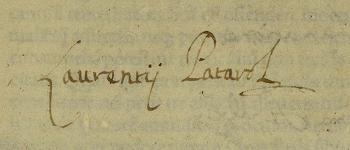 Laurentij Patarol